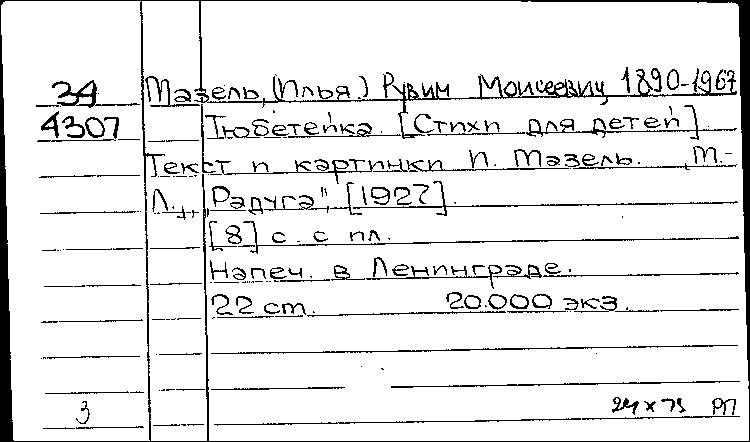 34 Мазель, (Илья) Рувим Моисеевич 1890-1967
4307 Тюбетейка. [Стихи для детей].
Текст и картинки И. Мазель. М.-
Л., "Радуга", [1927].
[8] с. с ил.
Напеч. в Ленинграде.
22 cm. 20.000 экз.
3 24 x 75 РП